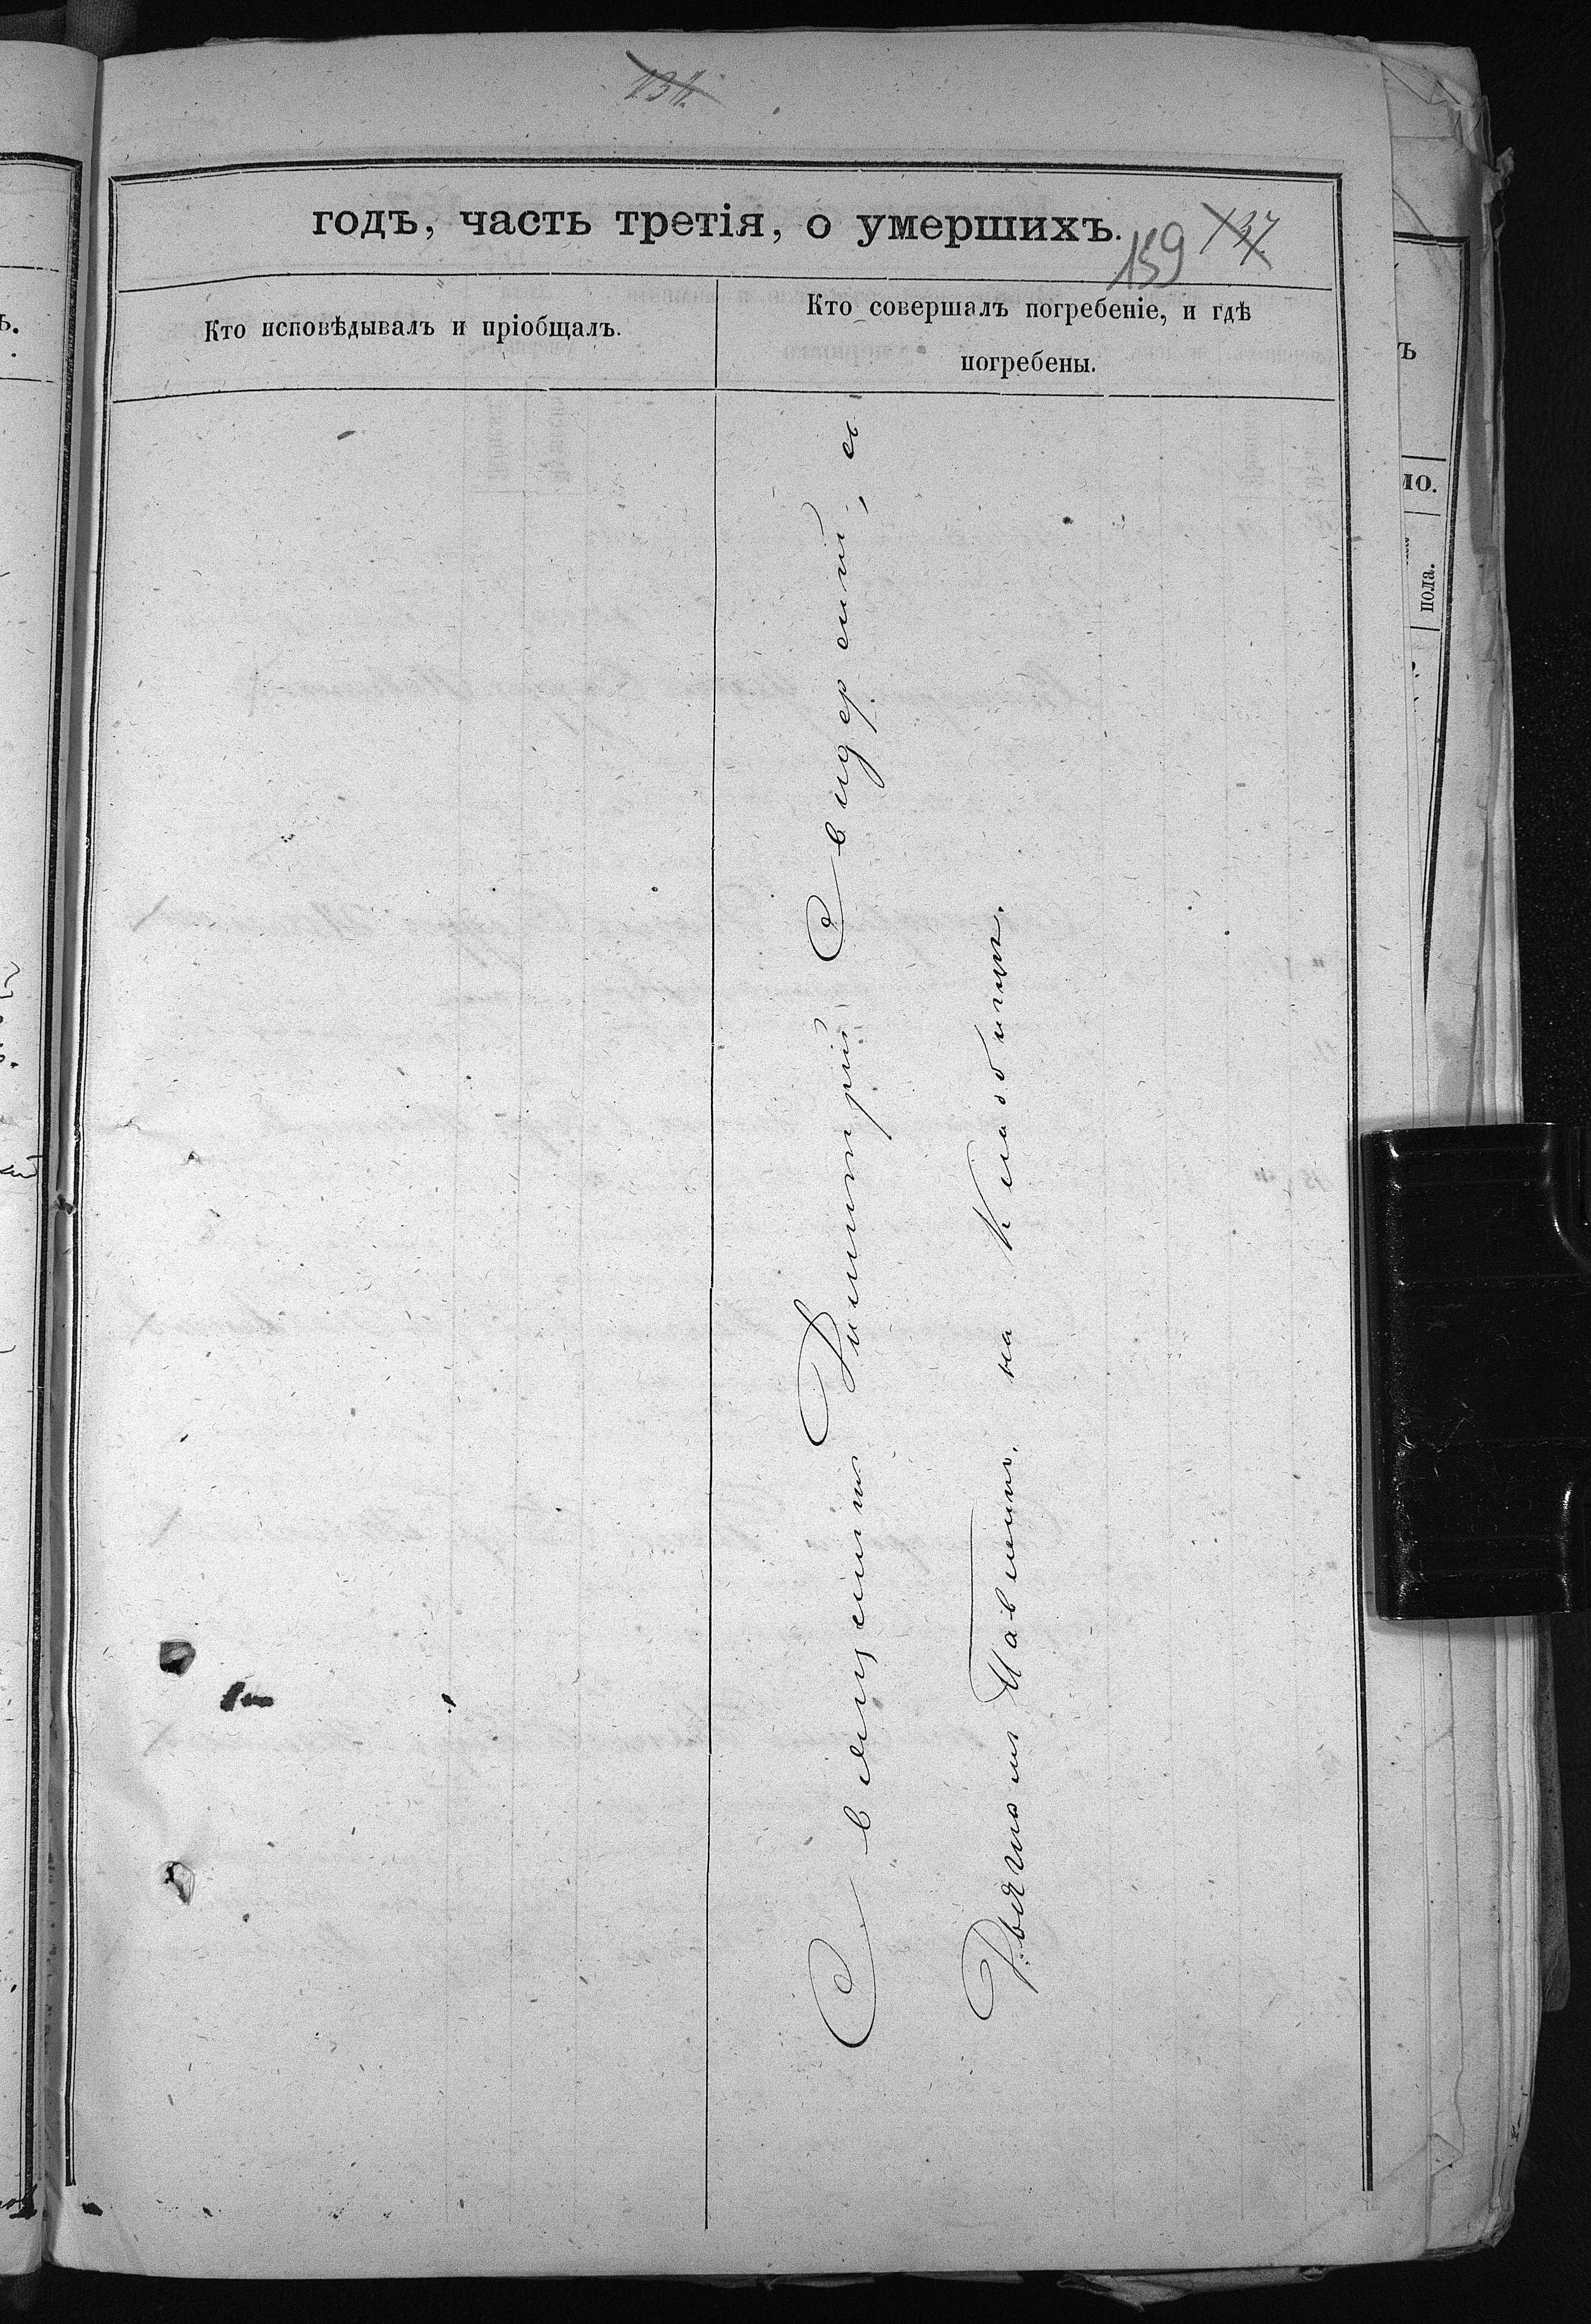 годъ, часть третія, о умершихъ.
159 137.
Кто исповѣдывалъ и пріобщалъ.
Кто совершалъ погребеніе, и гдѣ
погребены.
Священникъ Димитрій Свидерскій, съ
Дьячкомъ на Кладбищѣ.
мо.
пола.